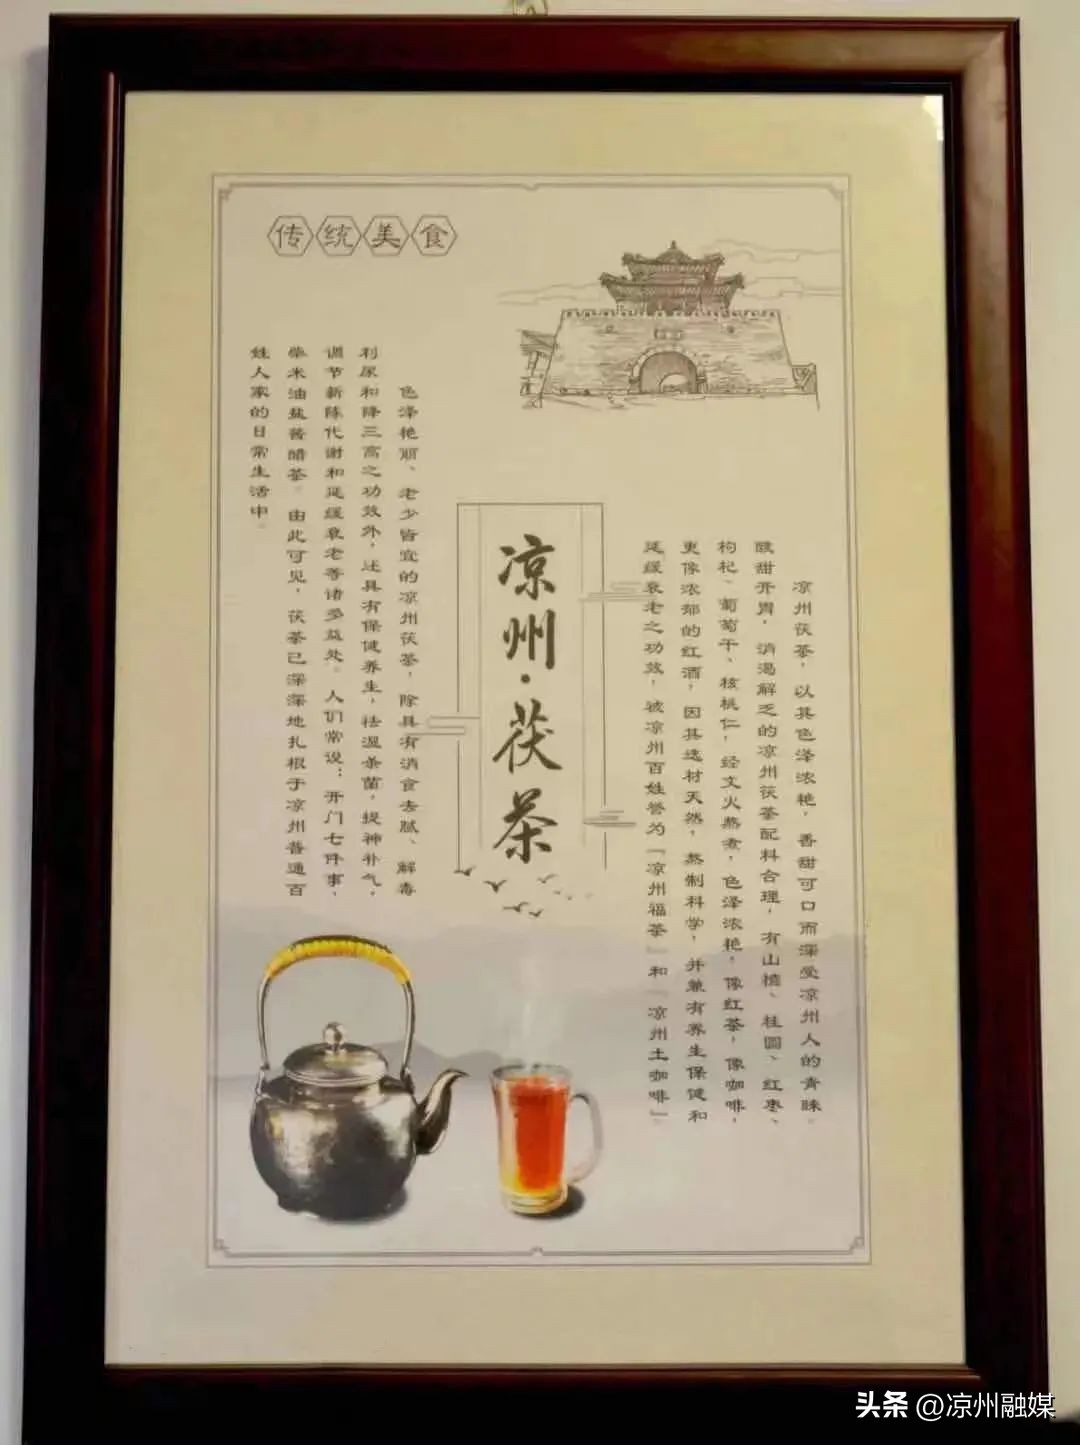 传统美食
凉州·茯茶
凉州茯茶，以其色泽浓艳，香甜可口而深受凉州人的青睐。
酸甜开胃，消渴解乏的凉州茯茶配料合理，有山楂、桂圆、红枣、
枸杞、葡萄干、核桃仁，经文火熬煮，色泽浓艳，像红茶，像咖啡，
更像浓郁的红酒，因其选材天然，熬制科学，并兼有养生保健和
延缓衰老之功效，被凉州百姓誉为「凉州福茶」和「凉州土咖啡」。
色泽艳丽、老少皆宜的凉州茯茶，除具有消食去腻、解毒
利尿和降三高之功效外，还具有保健养生，祛湿杀菌，提神补气，
调节新陈代谢和延缓衰老等诸多益处。人们常说：开门七件事，
柴米油盐酱醋茶。由此可见，茯茶已深深地扎根于凉州普通百
姓人家的日常生活中。
头条 @凉州融媒